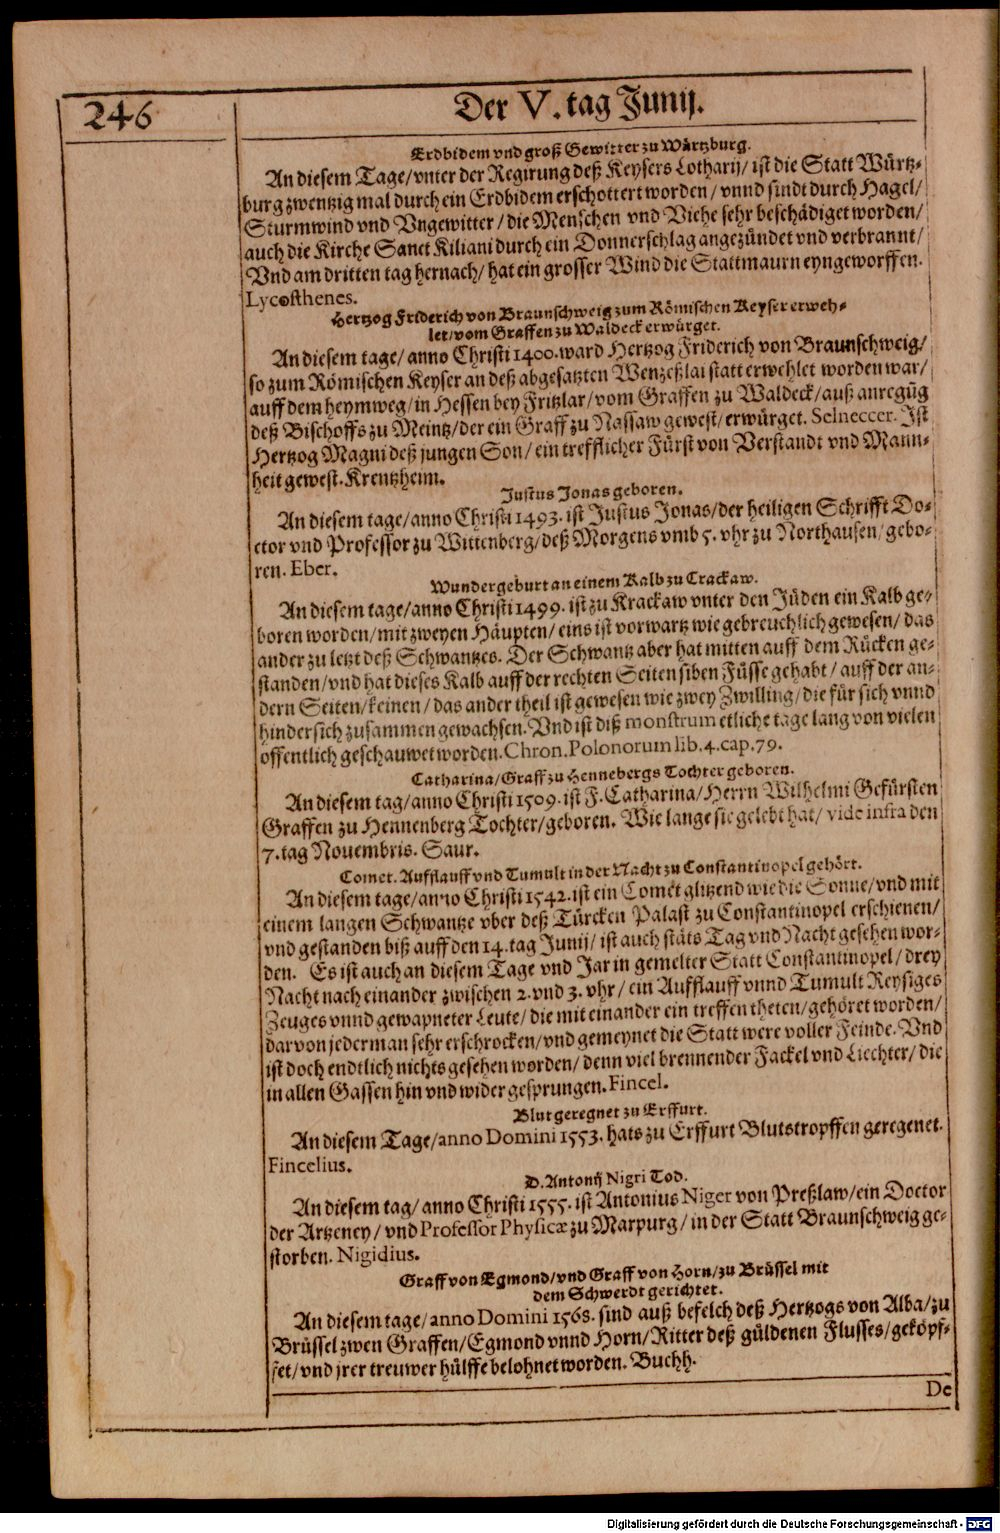 246
Der V. tag Junij.
Erdbidem vnd groß Gewitter zu Würtzburg.
An diesem Tage/ vnter der Regirung deß Keysers Lotharij/ ist die Statt Würtz-
burg zwentzig mal durch ein Erdbidem erschottert worden/ vnnd sindt durch Hagel/
Sturmwind vnd Vngewitter/ die Menschen vnd Viehe sehr beschädiget worden/
auch die Kirche Sanct Kiliani durch ein Donnerschlag angezündet vnd verbrannt/
Vnd am dritten tag hernach/ hat ein grosser Wind die Stattmaurn eyngeworffen.
Lycosthenes.
Hertzog Friderich von Braunschweig zum Römischen Keyser erweh-
let/ vom Graffen zu Waldeck erwürget.
An diesem tage/ anno Christi 1400. ward Hertzog Friderich von Braunschweig/
so zum Römischen Keyser an deß abgesatzten Wenzeßlai statt erwehlet worden war/
auff dem heymweg/ in Hessen bey Fritzlar/ vom Graffen zu Waldeck/ auß anregūg
deß Bischoffs zu Meintz/ der ein Graff zu Nassaw gewest/ erwürget. Selneccer. Ist
Hertzog Magni deß jungen Son/ ein trefflicher Fürst von Verstandt vnd Mann-
heit gewest. Krentzheim.
Justus Jonas geboren.
An diesem tage/ anno Christi 1493. ist Justus Jonas/ der heiligen Schrifft Do-
ctor vnd Professor zu Wittenberg/ deß Morgens vmb 5. vhr zu Northausen/ gebo-
ren. Eber.
Wundergeburt an einem Kalb zu Crackaw.
An diesem tage/ anno Christi 1499. ist zu Krackaw vnter den Jüden ein Kalb ge-
boren worden/ mit zweyen Häupten/ eins ist vorwartz wie gebreuchlich gewesen/ das
ander zu letzt deß Schwantzes. Der Schwantz aber hat mitten auff dem Rücken ge-
standen/ vnd hat dieses Kalb auff der rechten Seiten siben Füsse gehabt/ auff der an-
dern Seiten/ keinen/ das ander theil ist gewesen wie zwey Zwilling/ die für sich vnnd
hindersich zusammen gewachsen. Vnd ist diß monstrum etliche tage lang von vielen
öffentlich geschauwet worden. Chron. Polonorum lib. 4. cap. 79.
Catharina/ Graff zu Hennebergs Tochter geboren.
An diesem tag/ anno Christi 1509. ist F. Catharina/ Herrn Wilhelmi Gefürsten
Graffen zu Hennenberg Tochter/ geboren. Wie lange sie gelebt hat/ vide infra den
7. tag Nouembris. Saur.
Comet. Aufflauff vnd Tumult in der Nacht zu Constantinopel gehört.
An diesem tage/ anno Christi 1542. ist ein Comet glitzend wie die Sonne/ vnd mit
einem langen Schwantze vber deß Türcken Palast zu Constantinopel erschienen/
vnd gestanden biß auff den 14. tag Junij/ ist auch stäts Tag vnd Nacht gesehen wor-
den. Es ist auch an diesem Tage vnd Jar in gemelter Statt Constantinopel/ drey
Nacht nach einander zwischen 2. vnd 3. vhr/ ein Aufflauff vnnd Tumult Reysiges
Zeuges vnnd gewapneter Leute/ die mit einander ein treffen theten/ gehöret worden/
darvon jederman sehr erschrocken/ vnd gemeynet die Statt were voller Feinde. Vnd
ist doch endtlich nichts gesehen worden/ denn viel brennender Fackel vnd Liechter/ die
in allen Gassen hin vnd wider gesprungen. Fincel.
Blut geregnet zu Erffurt.
An diesem Tage/ anno Domini 1553. hats zu Erffurt Blutstropffen geregenet.
Fincelius.
D. Antonij Nigri Tod.
An diesem tag/ anno Christi 1555. ist Antonius Niger von Preßlaw/ ein Doctor
der Artzeney/ vnd Professor Physicæ zu Marpurg/ in der Statt Braunschweig ge-
storben. Nigidius.
Graff von Egmond/ vnd Graff von Horn/ zu Brüssel mit
dem Schwerdt gerichtet.
An diesem tage/ anno Domini 1568. sind auß befelch deß Hertzogs von Alba/ zu
Brüssel zwen Graffen/ Egmond vnnd Horn/ Ritter deß güldenen Flusses/ geköpf-
fet/ vnd jrer treuwer hülffe belohnet worden. Buchh.
De
Digitalisierung gefördert durch die Deutsche Forschungsgemeinschaft - DFG